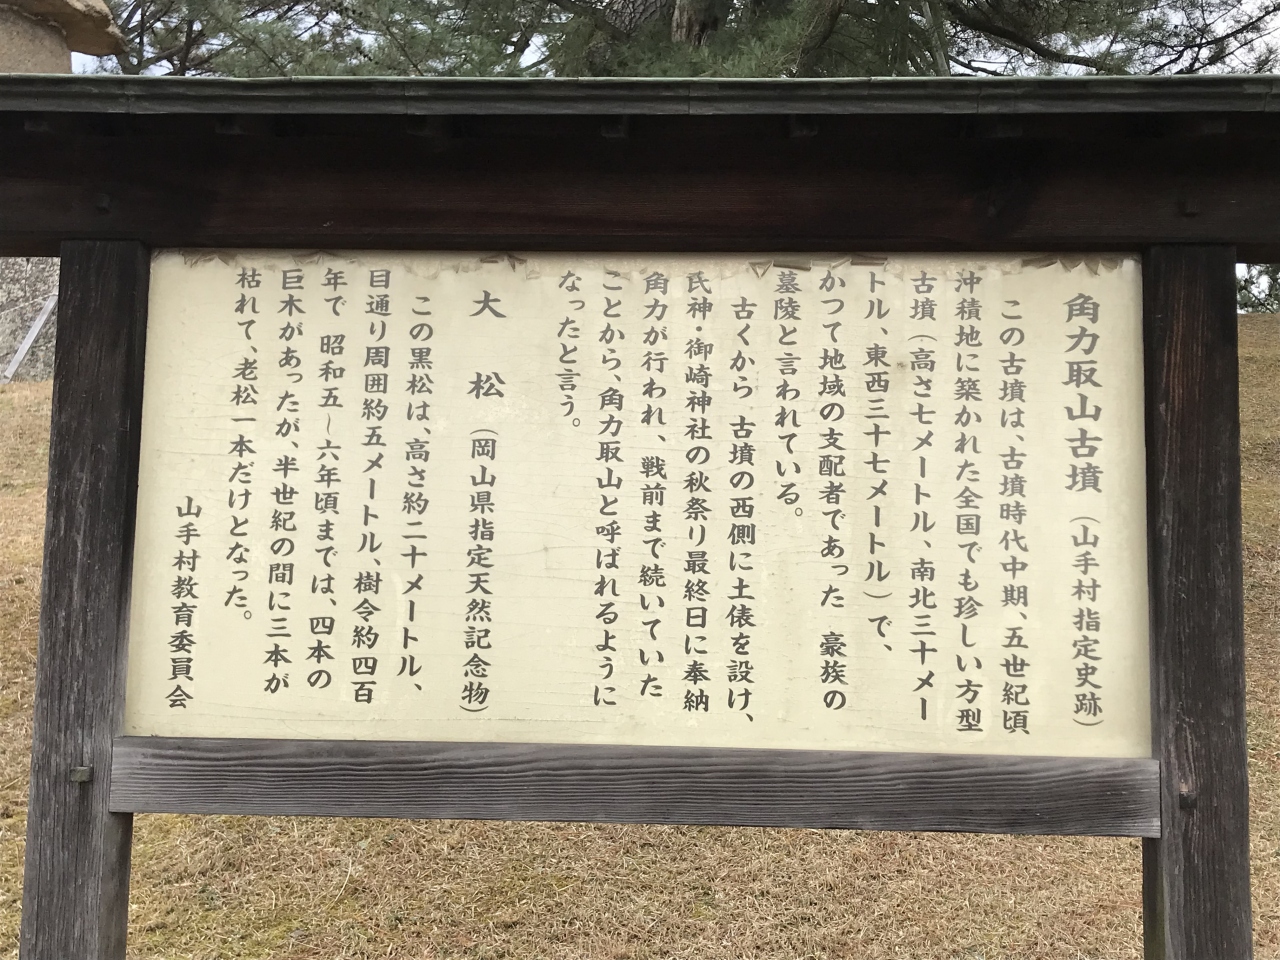 角力取山古墳（山手村指定史跡）
この古墳は、古墳時代中期、五世紀頃
沖積地に築かれた全国でも珍しい方型
古墳（高さ七メートル、南北三十メー
トル、東西三十七メートル）で、
かつて地域の支配者であった　豪族の
墓陵と言われている。
古くから　古墳の西側に土俵を設け、
氏神・御崎神社の秋祭り最終日に奉納
角力が行われ、戦前まで続いていた
ことから、角力取山と呼ばれるように
なったと言う。
大　松（岡山県指定天然記念物）
この黒松は、高さ約二十メートル、
目通り周囲約五メートル、樹令約四百
年で　昭和五～六年頃までは、四本の
巨木があったが、半世紀の間に三本が
枯れて、老松一本だけとなった。
山手村教育委員会